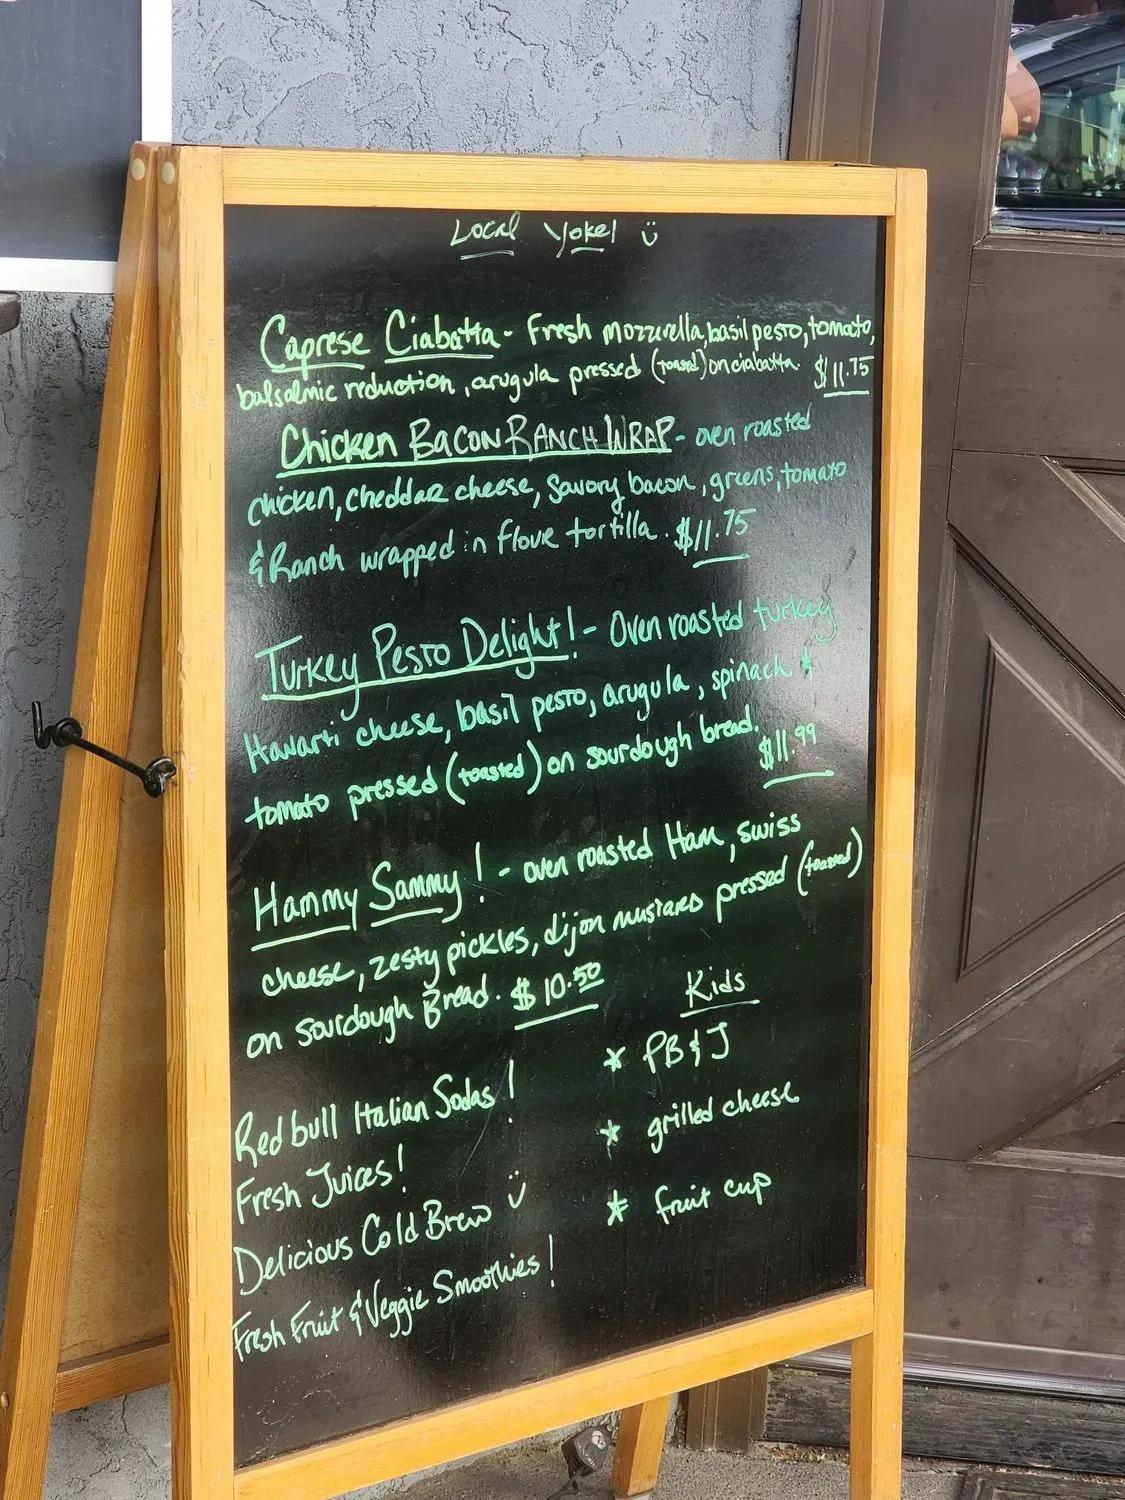 Local Yokel
Caprese Ciabatta - Fresh mozzerella, basil pesto, tomato,
balsalmic reduction, arugula pressed (toasted) on ciabatta. $11.75
Chicken BACON RANCH WRAP - oven roasted
chicken, cheddar cheese, savory bacon, greens, tomato
& Ranch wrapped in floue tortilla. $11.75
Turkey Pesto Delight! - Oven roasted turkey
Havarti cheese, basil pesto, arugula, spinach &
tomato pressed (toasted) on sourdough bread.
$11.99
Hammy Sammy! - oven roasted Ham, swiss
cheese, zesty pickles, dijon mustard pressed (toasted)
on sourdough Bread. $10.50
Kids
* PB & J
* grilled cheese
* fruit cup
Redbull Italian Sodas!
Fresh Juices!
Delicious Cold Brew
Fresh Fruit & Veggie Smoothies!